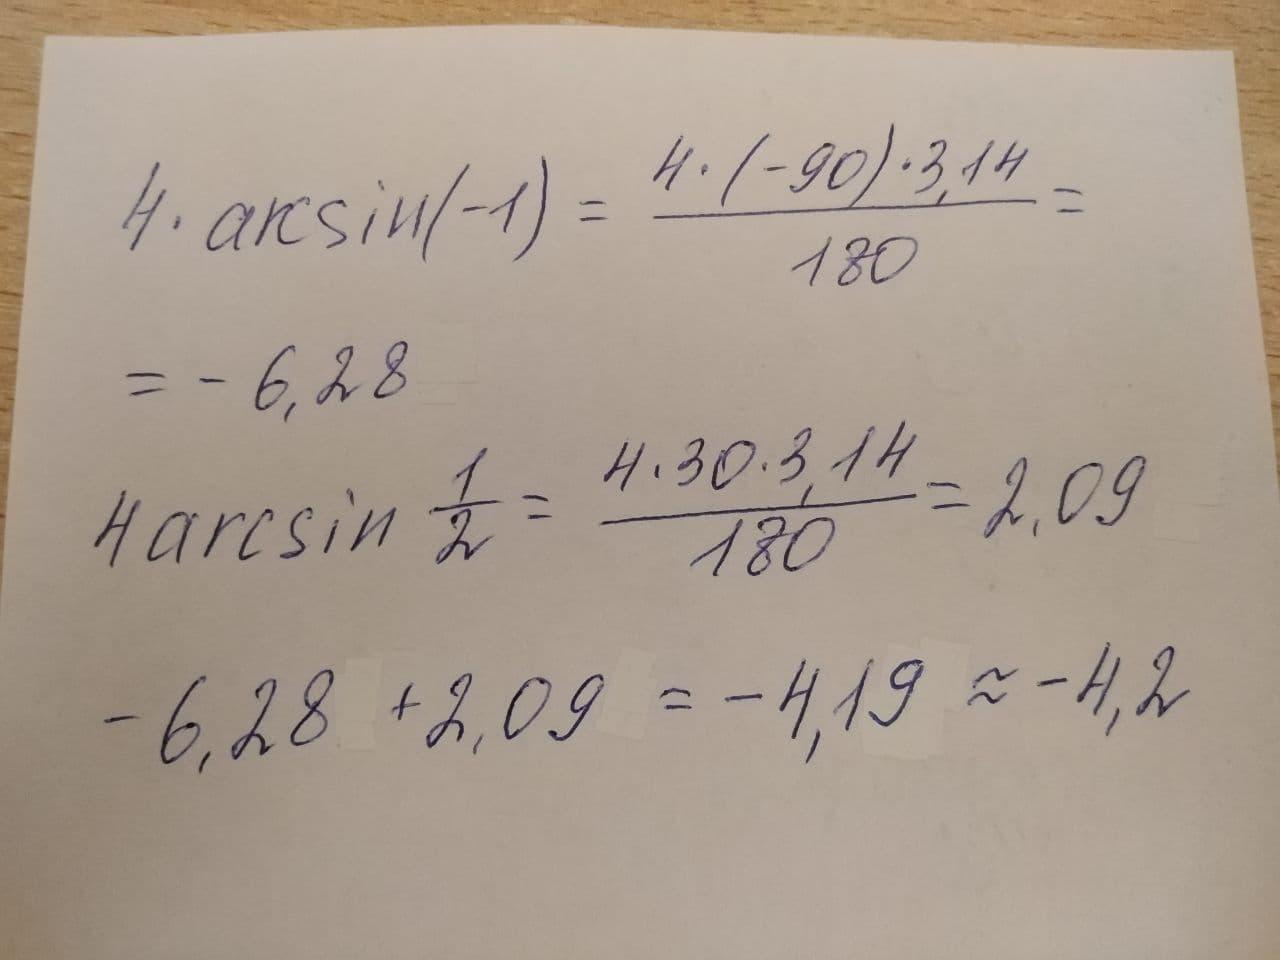 4 · arcsin(-1) = 4 · (-90) · 3,14 / 180 =
= - 6,28
4 arcsin 1/2 = 4 · 30 · 3,14 / 180 = 2,09
- 6,28 + 2,09 = - 4,19 ≈ - 4,2